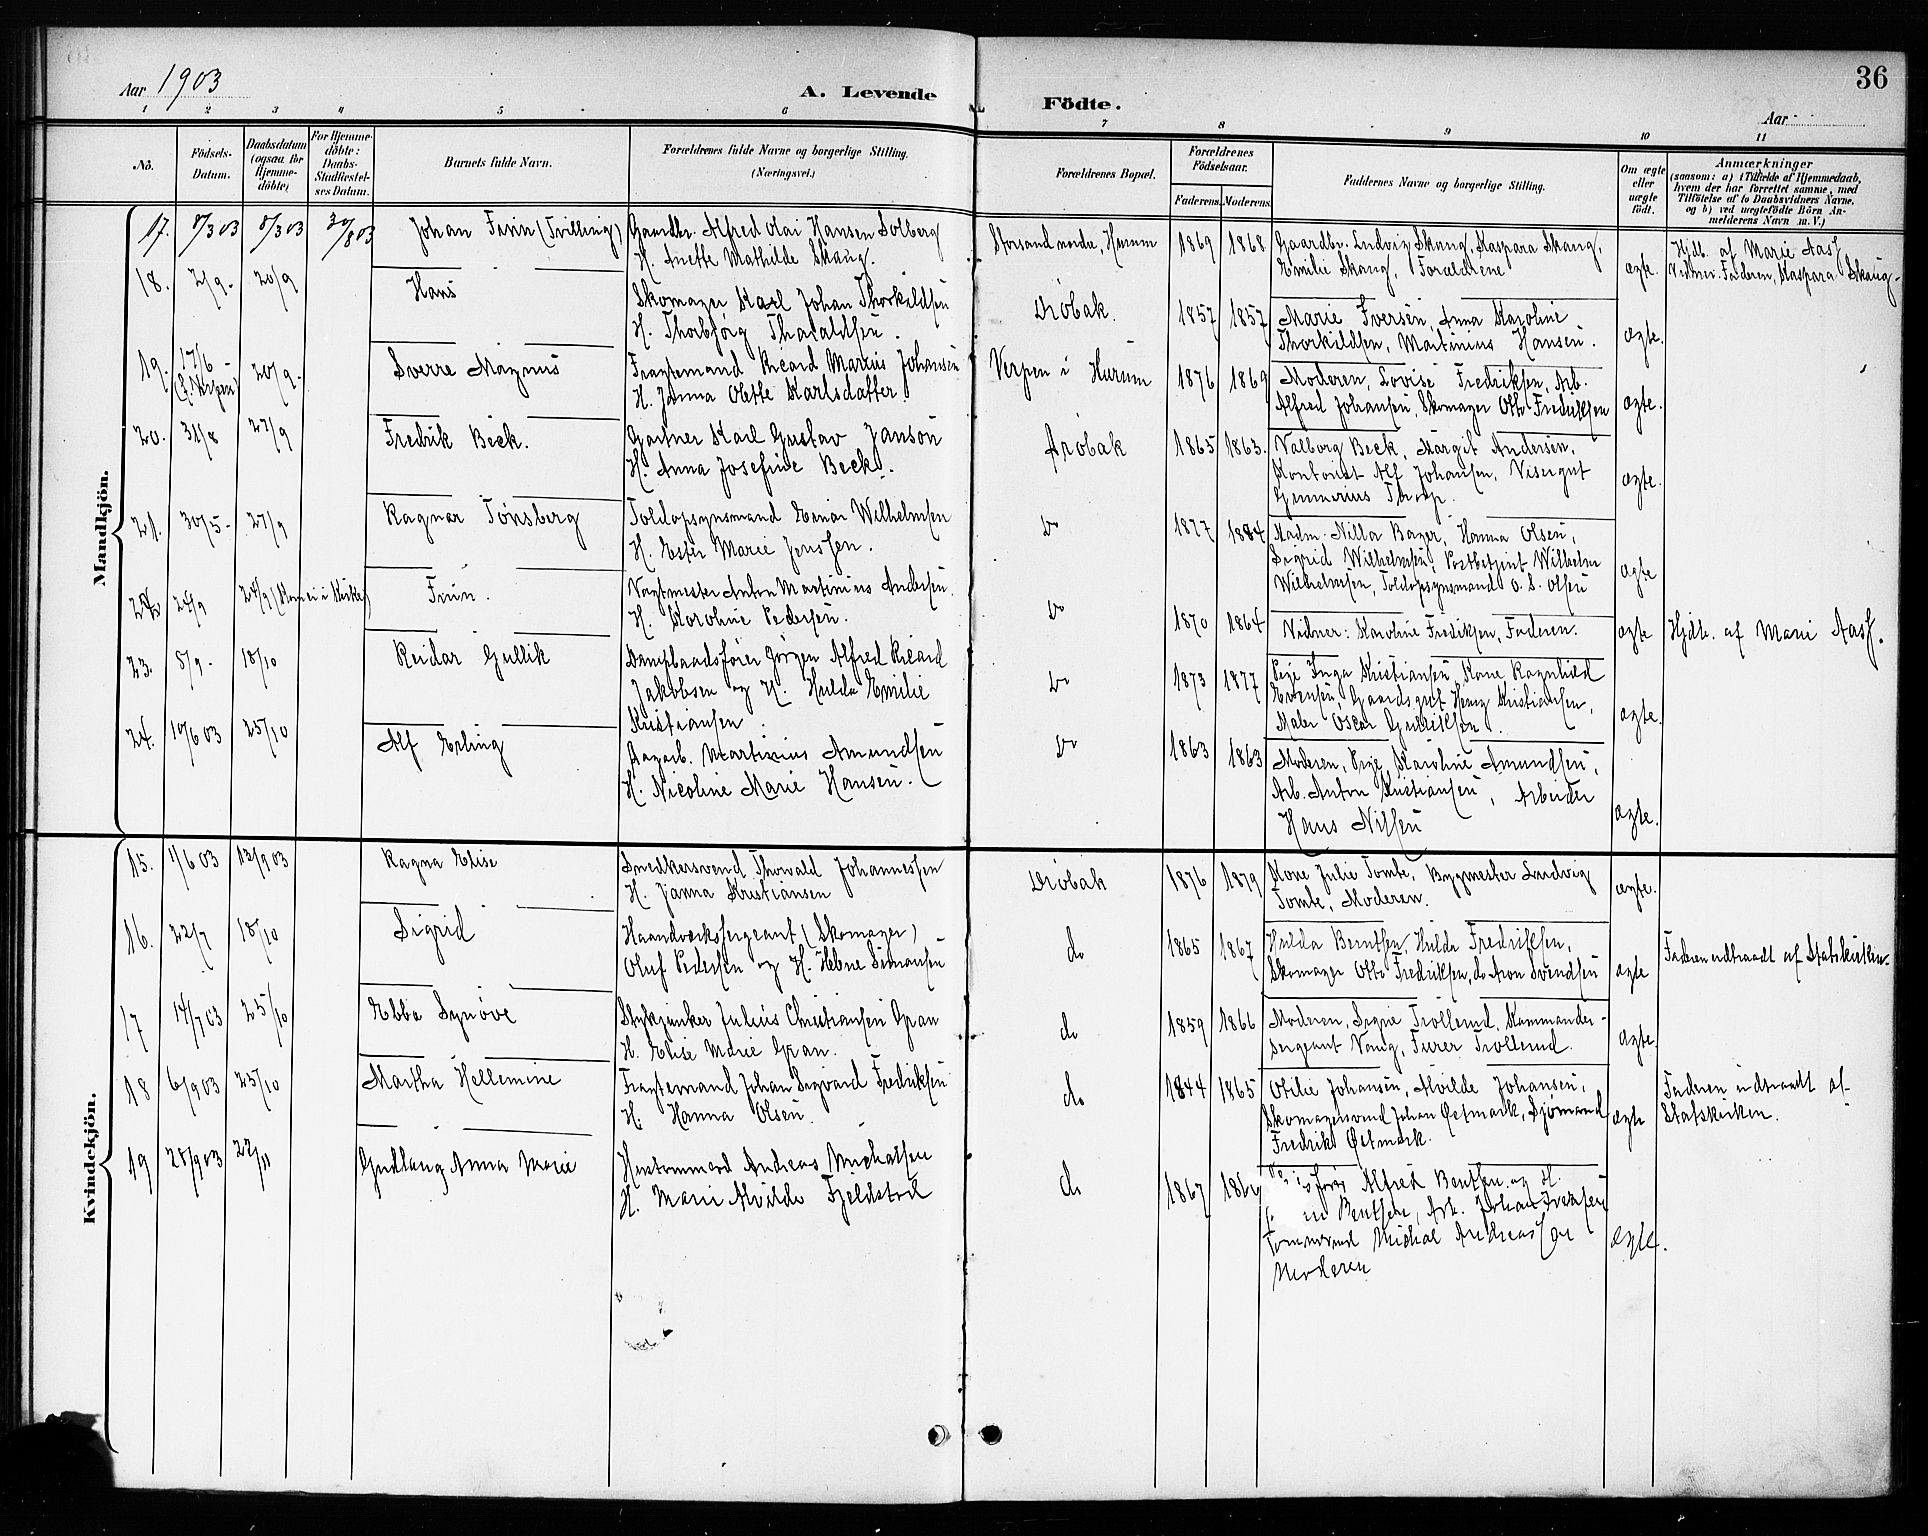 Aar 1903
A. Levende Födte.
Aar
36
1 2 3 4 5 6 7 8 9 10 11
No.
Födsels-Datum.
Daabsdatum (ogsaa for Hjemme-döbte)
For Hjemme-döbte: Daabs-Stadfæstel-ses Datum.
Barnets fulde Navn.
Forældrenes fulde Navne og borgerlige Stilling. (Næringsvei.)
Forældrenes Bopæl.
Forældrenes Födselsaar.
Faderens. Moderens.
Faddernes Navne og borgerlige Stilling.
Om ægte eller uægte födt.
Anmærkninger
(saasom: a) i Tilfælde af Hjemmedaab,
hvem der har forrettet samme, med
Tilföielse af to Daabsvidners Navne,
og b) ved uægtefödte Börn An-
melderens Navn m. V.)
Mandkjön.
17. 8/3 03 8/3 03 30/8 03 Johan Finn (Tvilling) Gaardbr. Alfred Olai Hansen Solberg
H. Anette Mathilde Skaug.
Storsand nordre, Hurum 1869 1868 Gaardbr. Ludvig Skaug, Kaspara Skaug,
Emilie Skaug, Forældrene
ægte. Hjdb. af Marie Aass
Vidner: Faderen, Kaspara Skaug
18. 2/9 - 20/9 Hans Skomager Karl Johan Thorkildsen
H. Thorbjørg Tharaldsen.
Drøbak. 1857 1857 Marie Iversen, Anna Karoline
Thorkildsen, Martinius Hansen.
ægte.
19. 17/6 - 20/9 - Sverre Magnus Fragtemand Ricard Marius Johansen
H. Janna Olette Karlsdatter.
Verpen i Hurum 1876 1869 Moderen, Lovise Fredriksen, Arb.
Alfred Johansen, Skomager Otto Fredriksen
ægte.
20. 31/8 27/9 Fredrik Beck. Gartner Karl Gustav Janson
H. Anna Josefine Beck.
Drøbak 1865 1863. Valborg Beck, Margit Andersen,
Kontorist Alf Johansen, Visergut
Gunnerius Thorp.
ægte.
21. 30/5 - 27/9 Ragnar Tønsberg Toldopsynsmand Einar Wilhelmsen
H. Ester Marie Jenssen.
Do 1877 1884 Madm. Nilla Bager, Hanna Olsen,
Sigrid Wilhelmsen, Postbetjent Wilhelm
Wilhelmsen, Toldopsynsmand O. S. Olsen
ægte
22 24/9 24/9 (Kom ei i Kirke) Finn. Vagtmester Anton Martinius Andersen.
H. Karoline Pedersen.
Do 1870 1864 Vidner: Karoline Fredriksen, Faderen.
ægte Hjdb. af Marie Aass.
23. 5/9 - 18/10 Reidar Gullik Dampbaadsfører Jørgen Alfred Ricard
Jakobsen og H. Hulda Emilie
Kristiansen.
Do 1873 1877 Pige Inga Kristiansen, Kone Ragnhild
Evensen, Gaardsgut Henry Kristiansen,
Maler Oscar Gulliksen.
ægte.
24. 10/6 03 25/10 Alf Erling Dagarb. Martinius Amundsen
H. Nicoline Marie Hansen.
Do 1863 1863 Moderen, Pige Karoline Amundsen,
Arb. Anton Kristiansen, Arbeider
Hans Nilsen
ægte.
Kvindekjön.
15. 1/6 03 13/9 03 Ragna Elise Snedkersvend Thorvald Johannessen
H. Janna Kristiansen
Drøbak 1876 1879 Kone Julie Tombe, Bygmester Ludvig
Tombe, Moderen.
ægte.
16. 22/7 18/10 Sigrid Haandverkssergeant (Skomager)
Oluf Pedersen og H. Helene Simonsen
do 1865 1867 Hulda Berntsen, Hulda Fredriksen,
Skomager Otto Fredriksen, do Aron Svendsen
ægte Faderen udtraadt af Statskirken.
17 14/7 03 25/10 Ebba Synøve Stykjunker Julius Christiansen Gran
H. Elise Marie Gran.
do 1859 1866 Moderen, Signe Trollerud, Kommander-
sergeant Vang, Furer Trollerud.
ægte.
18 6/9 03 25/10 Martha Hellemine Fragtemand Johan Sigvard Fredriksen
H. Hanna Olsen.
do 1844 1865 Otilie Johansen, Alvilde Johansen,
Skomagersvend Johan Østmark, Sjømand
Fredrik Østmark.
ægte Faderen udtraadt af
Statskirken.
19 28/9 03 22/11 Gudlaug Anna Marie Husfømmerd Andreas Michalsen
H. Marie Alvilde Fjeldstad
do 1867 Alfred Bentsen og H.
Bentsen, Arb. Johan Iversen
Tømmermd Michal Andreassen
Moderen
ægte.